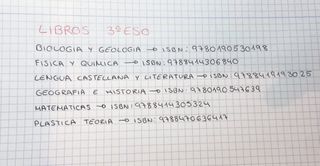 LIBROS 3º ESO
BIOLOGIA Y GEOLOGIA → ISBN: 9780190530198
FISICA Y QUIMICA → ISBN: 9788414306840
LENGUA CASTELLANA Y LITERATURA → ISBN: 9788419193025
GEOGRAFIA E HISTORIA → ISBN: 9780190547639
MATEMATICAS → ISBN: 9788414305324
PLASTICA TEORIA → ISBN: 9788470636417